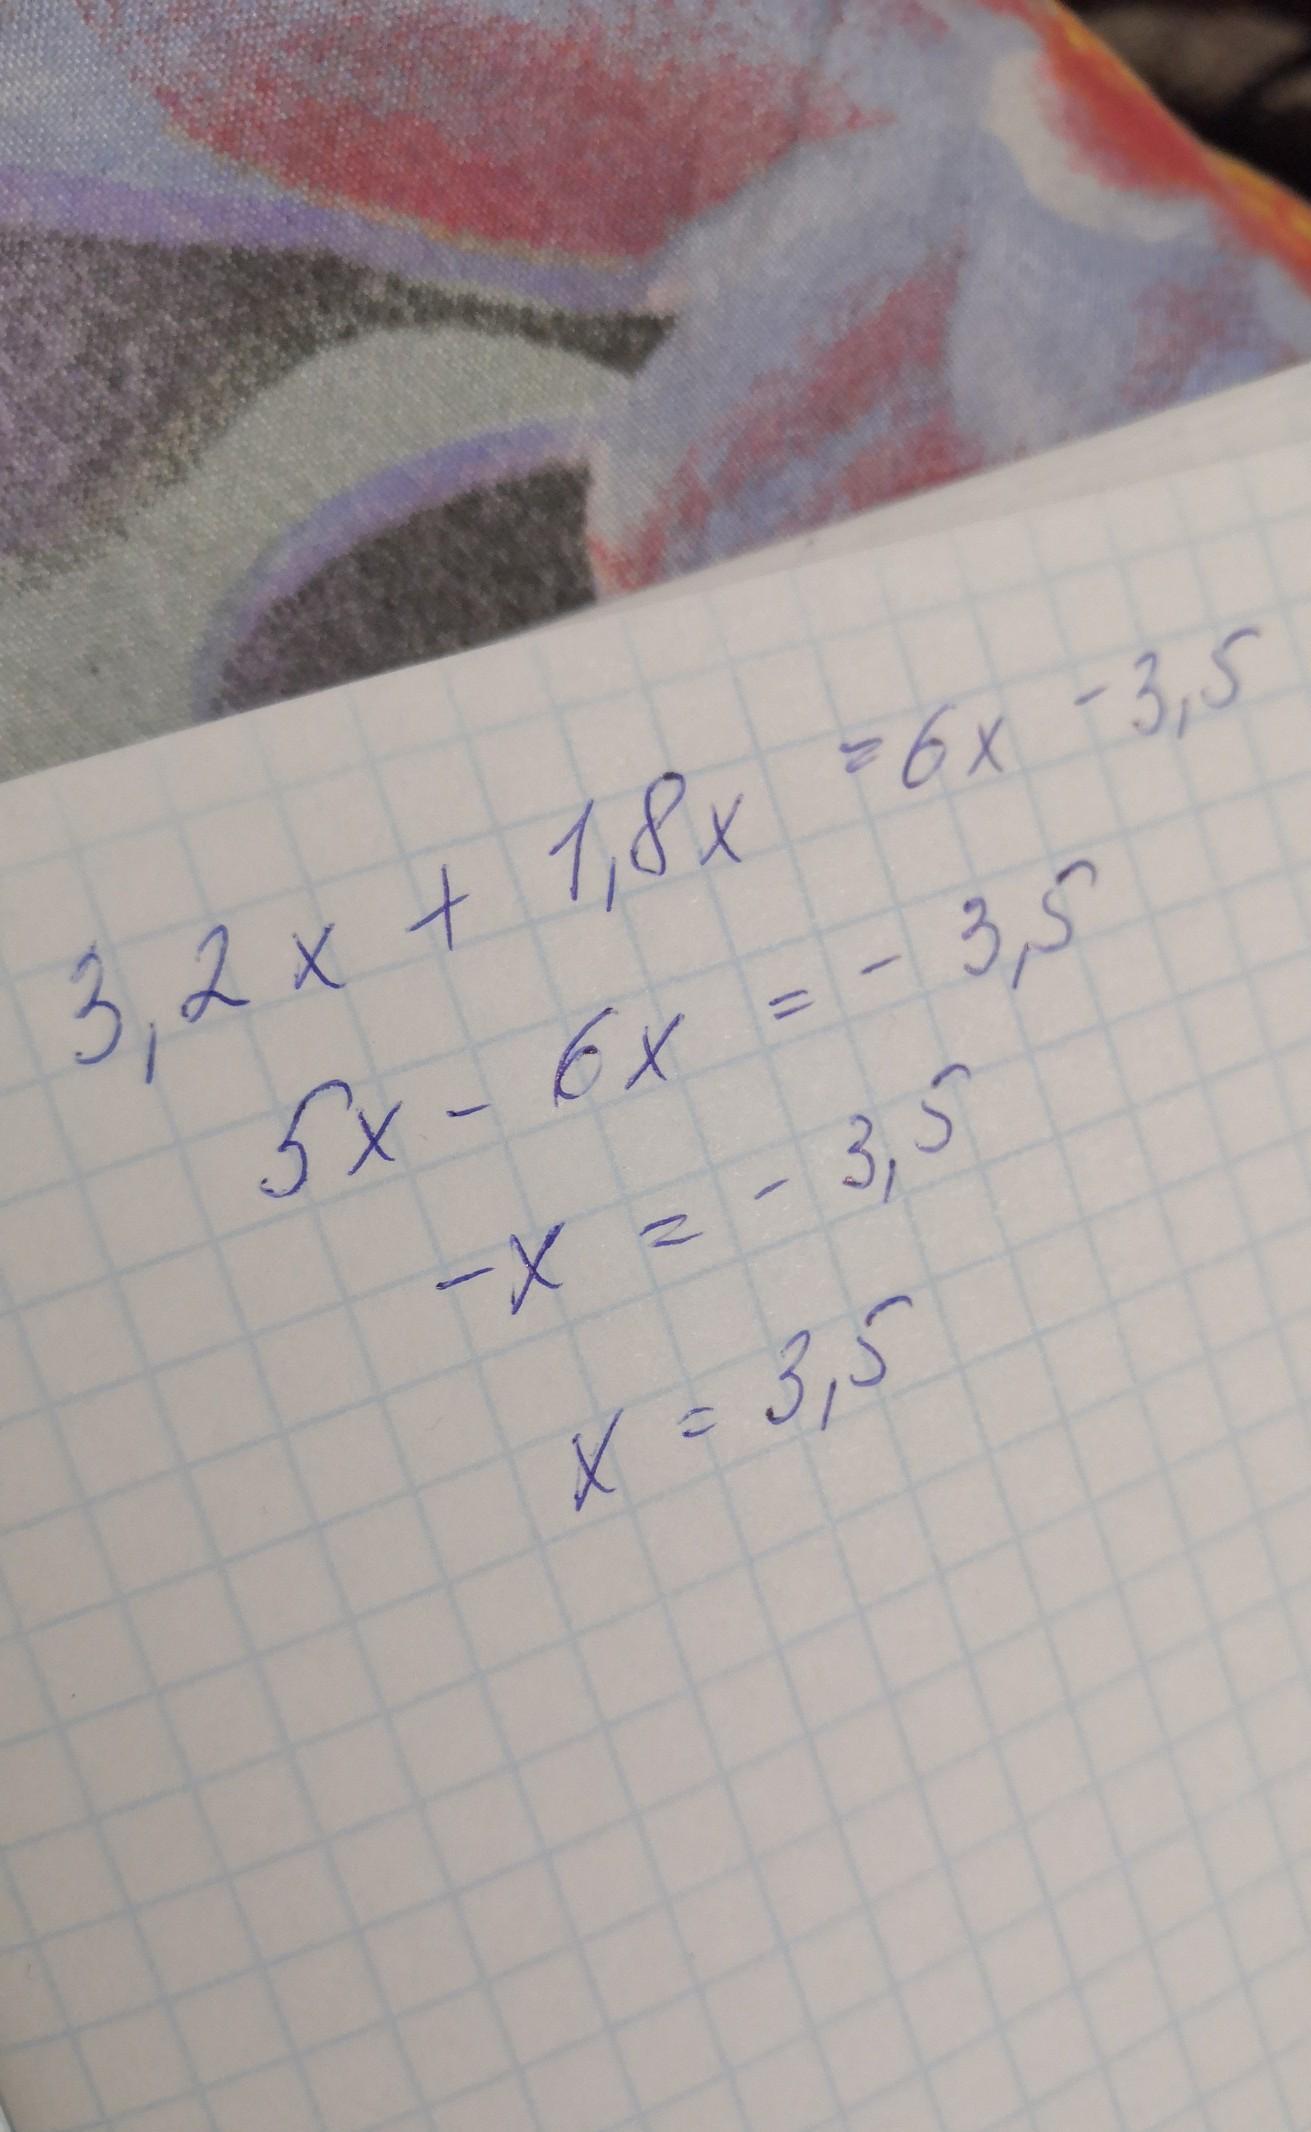 3,2x + 1,8x = 6x - 3,5
5x - 6x = - 3,5
-x = - 3,5
x = 3,5